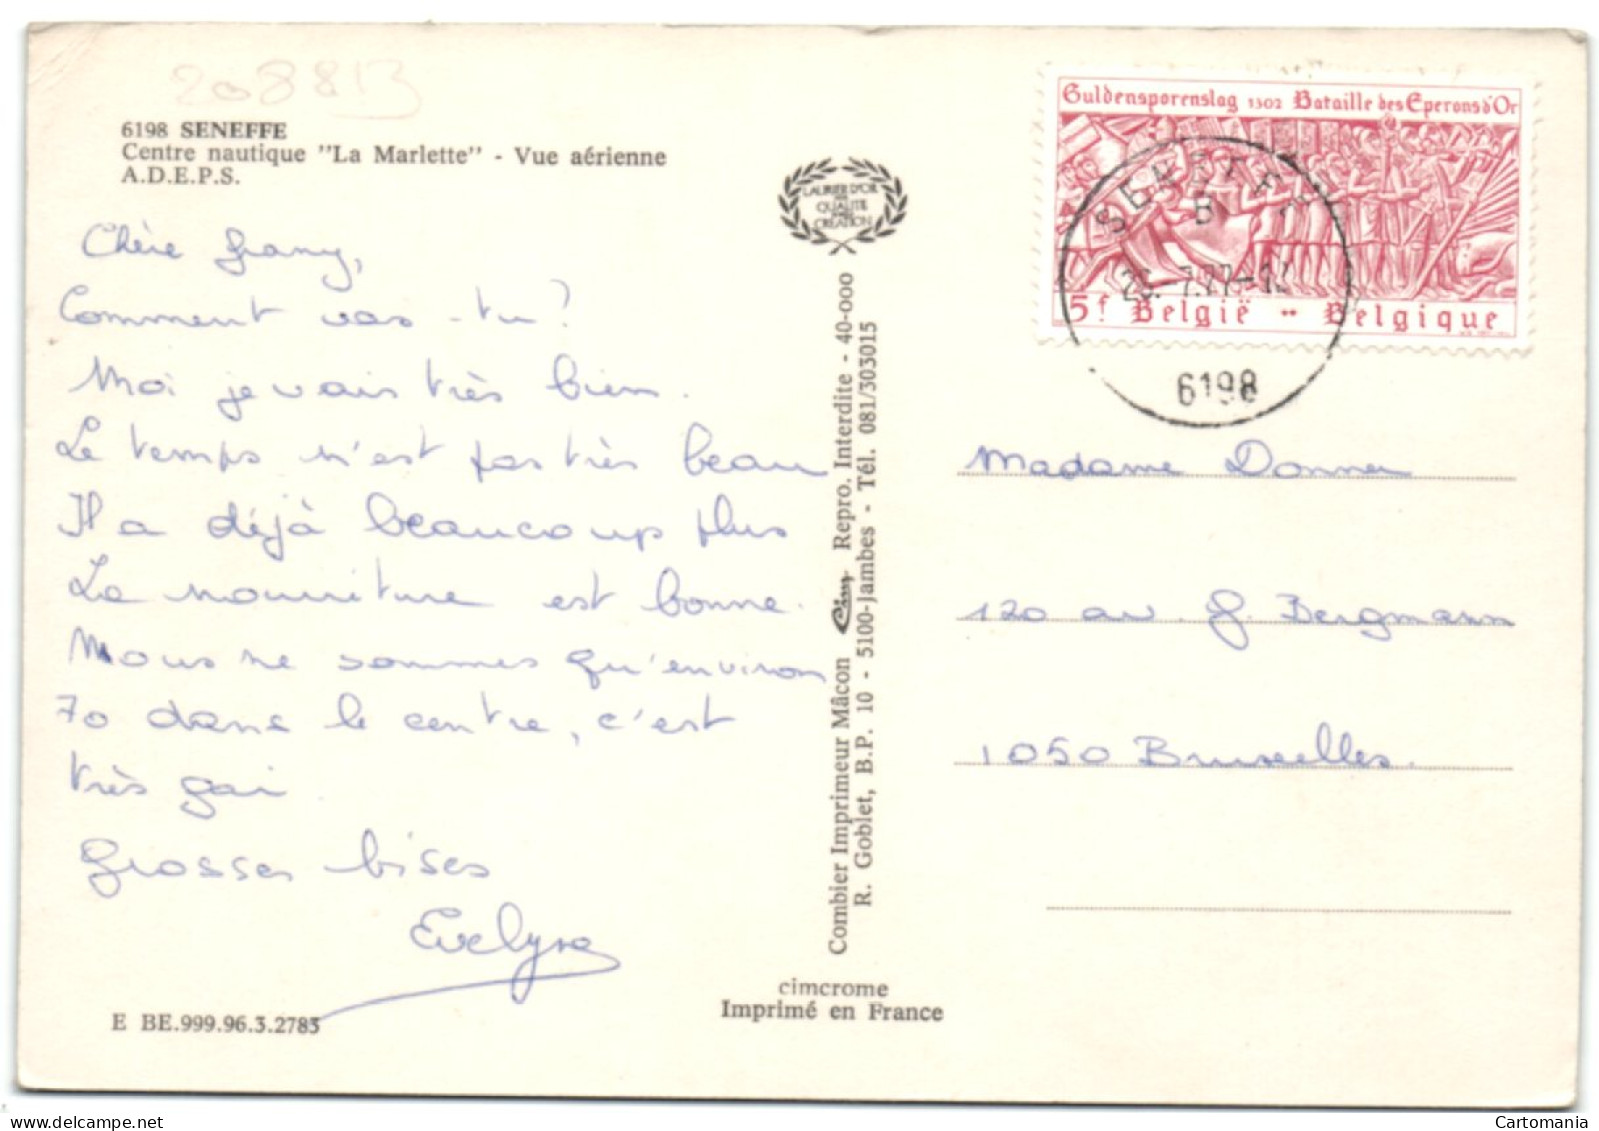 208813
6198 SENEFFE
Centre nautique "La Marlette" - Vue aérienne
A.D.E.P.S.
Chère Grany,
Comment vas-tu?
Moi je vais très bien.
Le temps n'est pas très beau
Il a déjà beaucoup plus
La nourriture est bonne.
Nous ne sommes qu'environ
70 dans le centre, c'est
très gai
grosses bises
Evelyne
E BE.999.96.3.2783
LAURIER D'OR
DE
QUALITE
CREATION
Combier Imprimeur Mâcon Cim Repro. Interdite - 40-000
R. Goblet, B.P. 10 - 5100-Jambes - Tél. 081/303015
cimcrome
Imprimé en France
Guldensporenslag 1302 Bataille des Eperons d'Or
5f België - Belgique
SENEFFE
B
7.77-1
6198
Madame Donner
120 av. G. Bergmann
1050 Bruxelles.
Cartomania